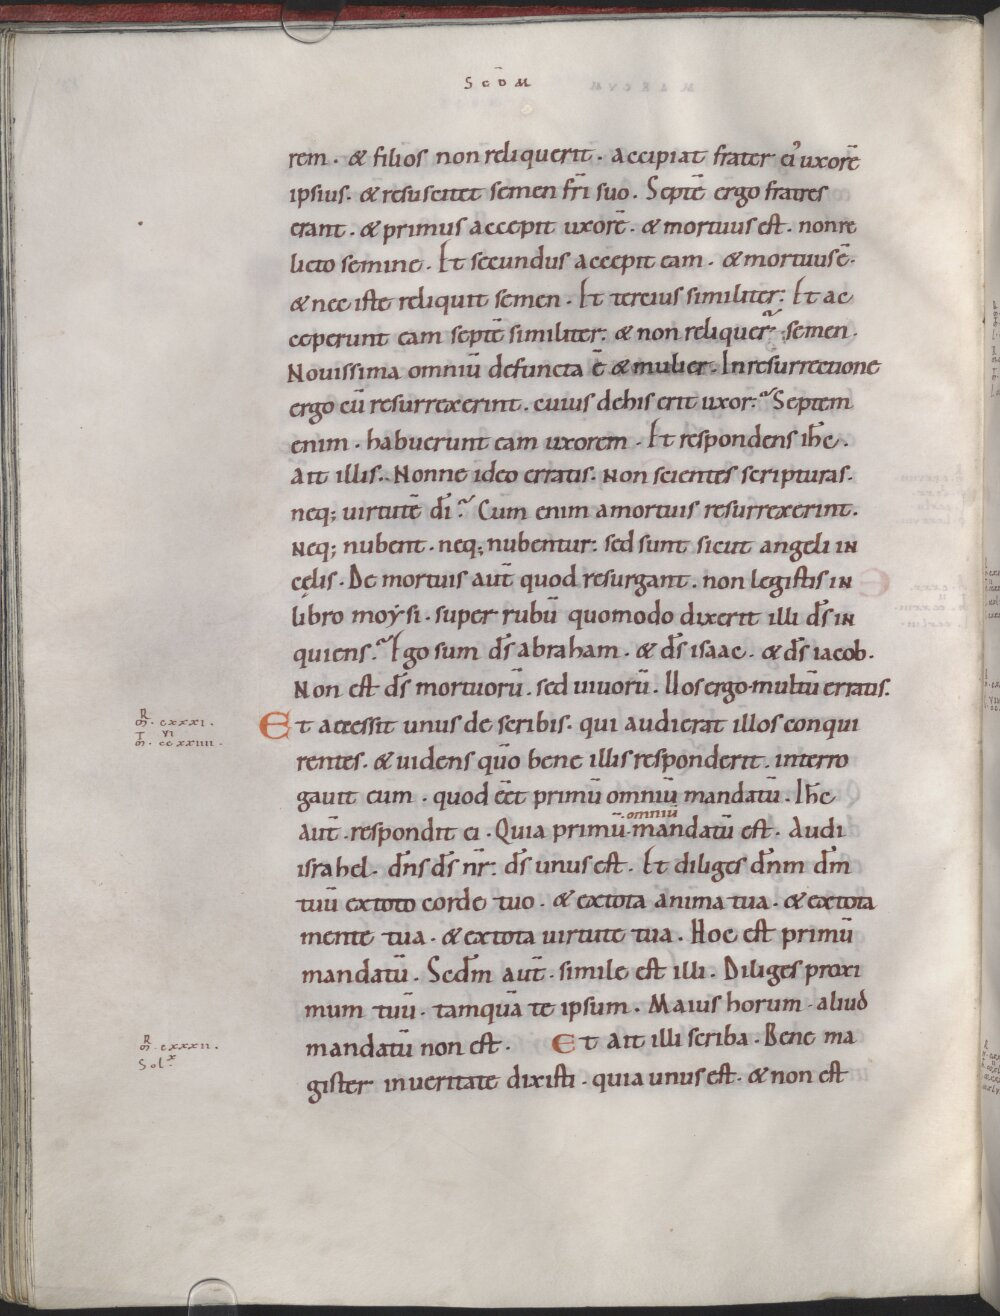 SCD̄M
rem . & filios non reliquerit . Accipiat frater ei᾿ uxorē
ipsius . & resuscitet semen fr̄i suo . Septē ergo fratres
erant . & primus accepit uxorē . & mortuus est . non re
licto semine . Et secundus accepit eam . & mortuus ē .
& nec iste reliquit semen . Et tercius similiter : Et ac
ceperunt eam septē similiter : & non reliquer̄ . semen .
Nouissima omniū defuncta ē & mulier . In resurrectione
ergo cū resurrexerint . cuius de his erit uxor : Septem
enim . habuerunt eam uxorem . Et respondens ih̄c .
Ait illis . Nonne ideo erratis . Non scientes scripturas .
neq; uirtutē dī . Cum enim a mortuis resurrexerint .
Neq; nubent . neq; nubentur : sed sunt sicut angeli in
cęlis . De mortuis aut̄ quod resurgant . non legistis in
libro moẏsi . super rubū quomodo dixerit illi d̄s in
quiens . Ego sum d̄s abraham . & d̄s isaac . & d̄s iacob .
Non est d̄s mortuorū . sed uiuorū . Uos ergo multū erratis .
R
m . cxxxi .
T vi
m . ccxxiiii .
Et accessit unus de scribis . qui audierat illos conqui
rentes . & uidens quo bene illis responderit . interro
gauit eum . quod eēt primū omniū mandatū . Ih̄c
aut̄ . respondit ei . Quia primū omniū mandatū est . Audi
israhel . dn̄s d̄s nr̄ : d̄s unus est . Et diliges dn̄m dm̄
tuū ex toto corde tuo . & ex tota anima tua . & ex tota
mente tua . & ex tota uirtute tua . Hoc est primū
mandatū . Secdm̄ aut̄ . simile est illi . Diliges proxi
mum tuū . tamquā te ipsum . Maius horum . aliud
R
m . cxxxii .
Sol x
mandatū non est . Et Ait illi scriba . Bene ma
gister in ueritate dixisti . quia unus est . & non est